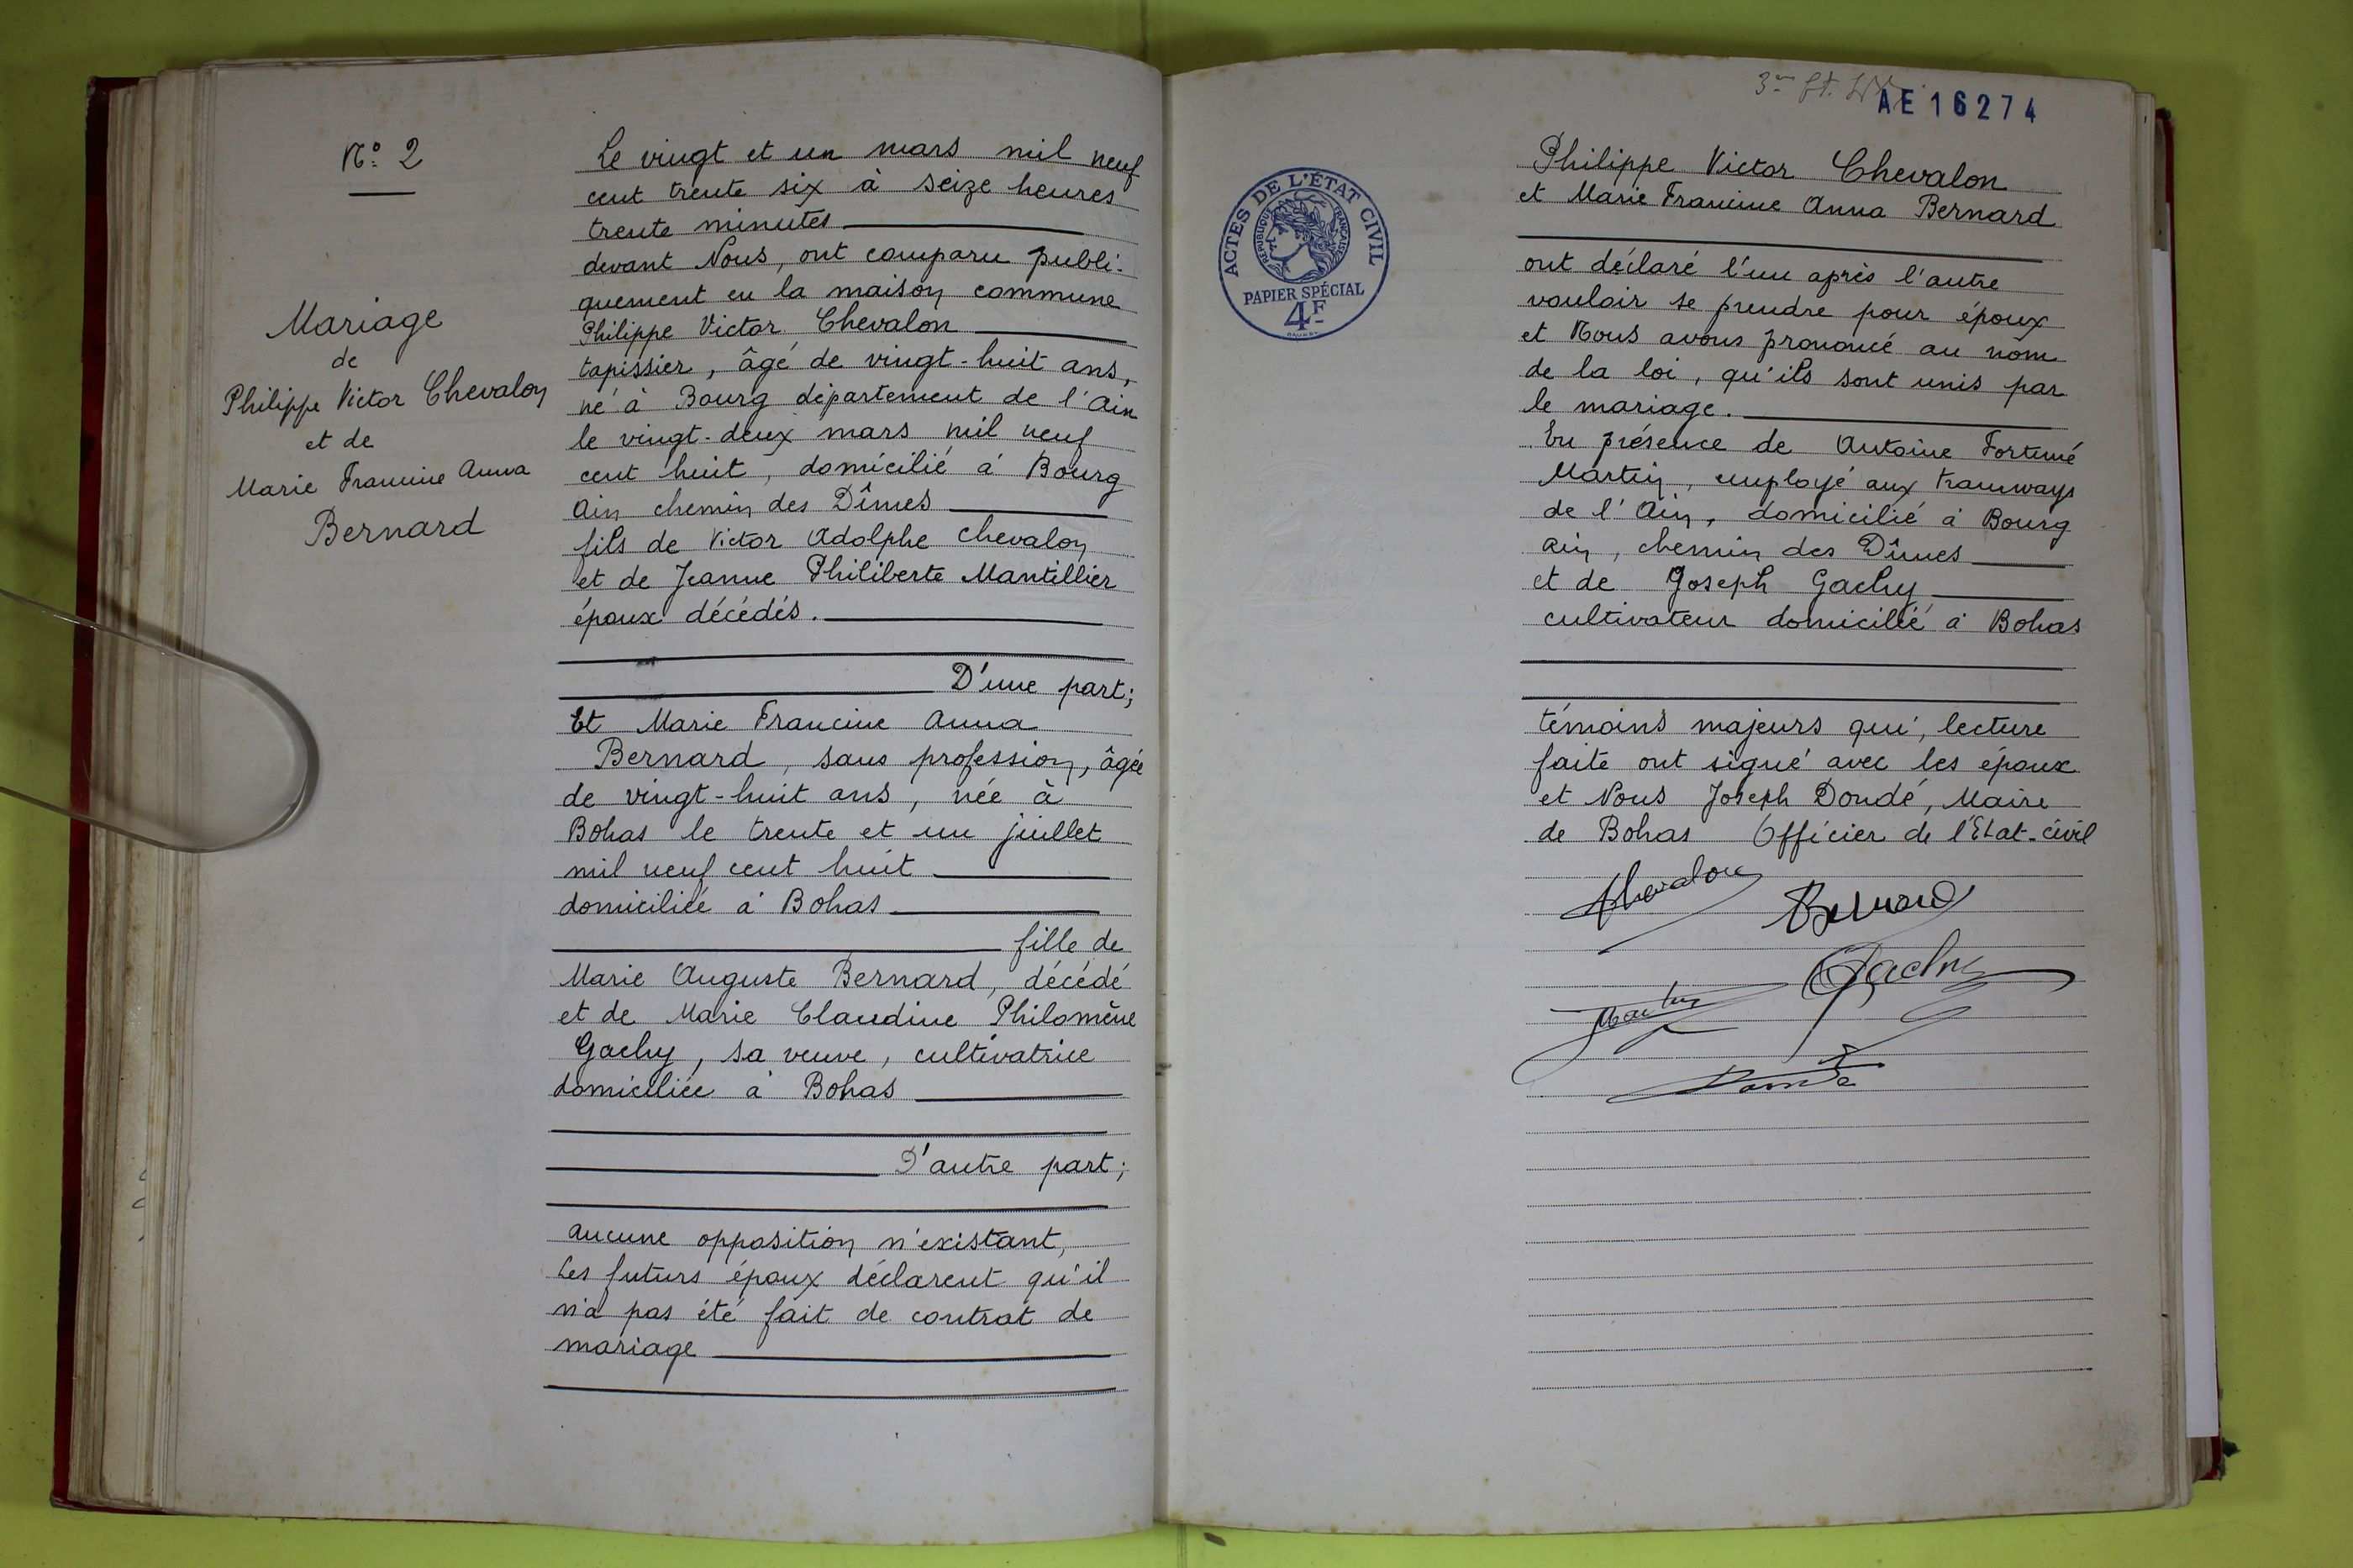 N° 2
Mariage
de
Philippe Victor Chevalon
et de
Marie Francine Anna
Bernard
Le vingt et un mars mil neuf
cent trente six à seize heures
trente minutes
devant Nous, ont comparu publi-
quement en la maison commune
Philippe Victor Chevalon
tapissier, âgé de vingt-huit ans,
né à Bourg département de l'Ain
le vingt-deux mars mil neuf
cent huit, domicilié à Bourg
Ain chemin des Dîmes
fils de Victor Adolphe Chevalon
et de Jeanne Philiberte Mantillier
époux décédés.
D'une part;
Et Marie Francine Anna
Bernard, sans profession, âgée
de vingt-huit ans, née à
Bohas le trente et un juillet
mil neuf cent huit
domiciliée à Bohas
fille de
Marie Auguste Bernard, décédé
et de Marie Claudine Philomène
Gachy, sa veuve, cultivatrice
domiciliée à Bohas
D'autre part;
aucune opposition n'existant,
Les futurs époux déclarent qu'il
n'a pas été fait de contrat de
mariage
AE 16274
ACTES DE L'ÉTAT CIVIL
RÉPUBLIQUE FRANÇAISE
PAPIER SPÉCIAL
4F
Philippe Victor Chevalon
et Marie Francine Anna Bernard
ont déclaré l'un après l'autre
vouloir se prendre pour époux
et Nous avons prononcé au nom
de la loi, qu'ils sont unis par
le mariage.
En présence de Antoine Fortuné
Martin, employé aux tramways
de l'Ain, domicilié à Bourg
Ain, chemin des Dîmes
et de Joseph Gachy
cultivateur domicilié à Bohas
témoins majeurs qui, lecture
faite ont signé avec les époux
et Nous Joseph Doudé, Maire
de Bohas Officier de l'Etat-civil
Chevalon
Bernard
Gachy
Martin